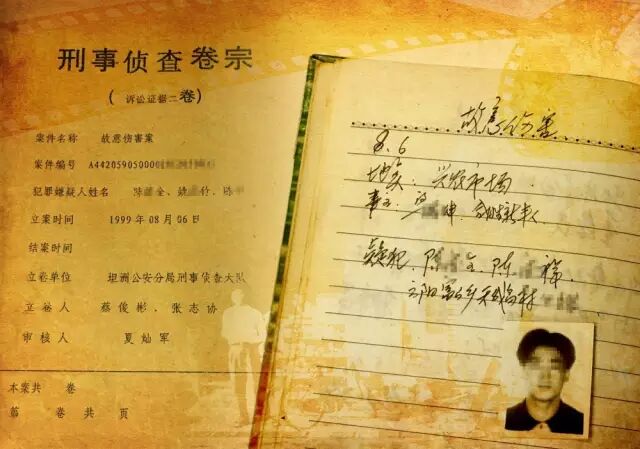 刑事侦查卷宗
(诉讼证据二卷)
案件名称 故意伤害案
案件编号 A44205905000
犯罪嫌疑人姓名 陈 全、姚 竹、陈
立案时间 1999年08月06日
结案时间
立卷单位 坦洲公安分局刑事侦查大队
立卷人 蔡俊彬、张志协
审核人 夏灿军
本案共 卷
第 卷共 页
故意伤害
8.6
地点:兴农市场
事主:
疑犯:陈 全、陈 祥